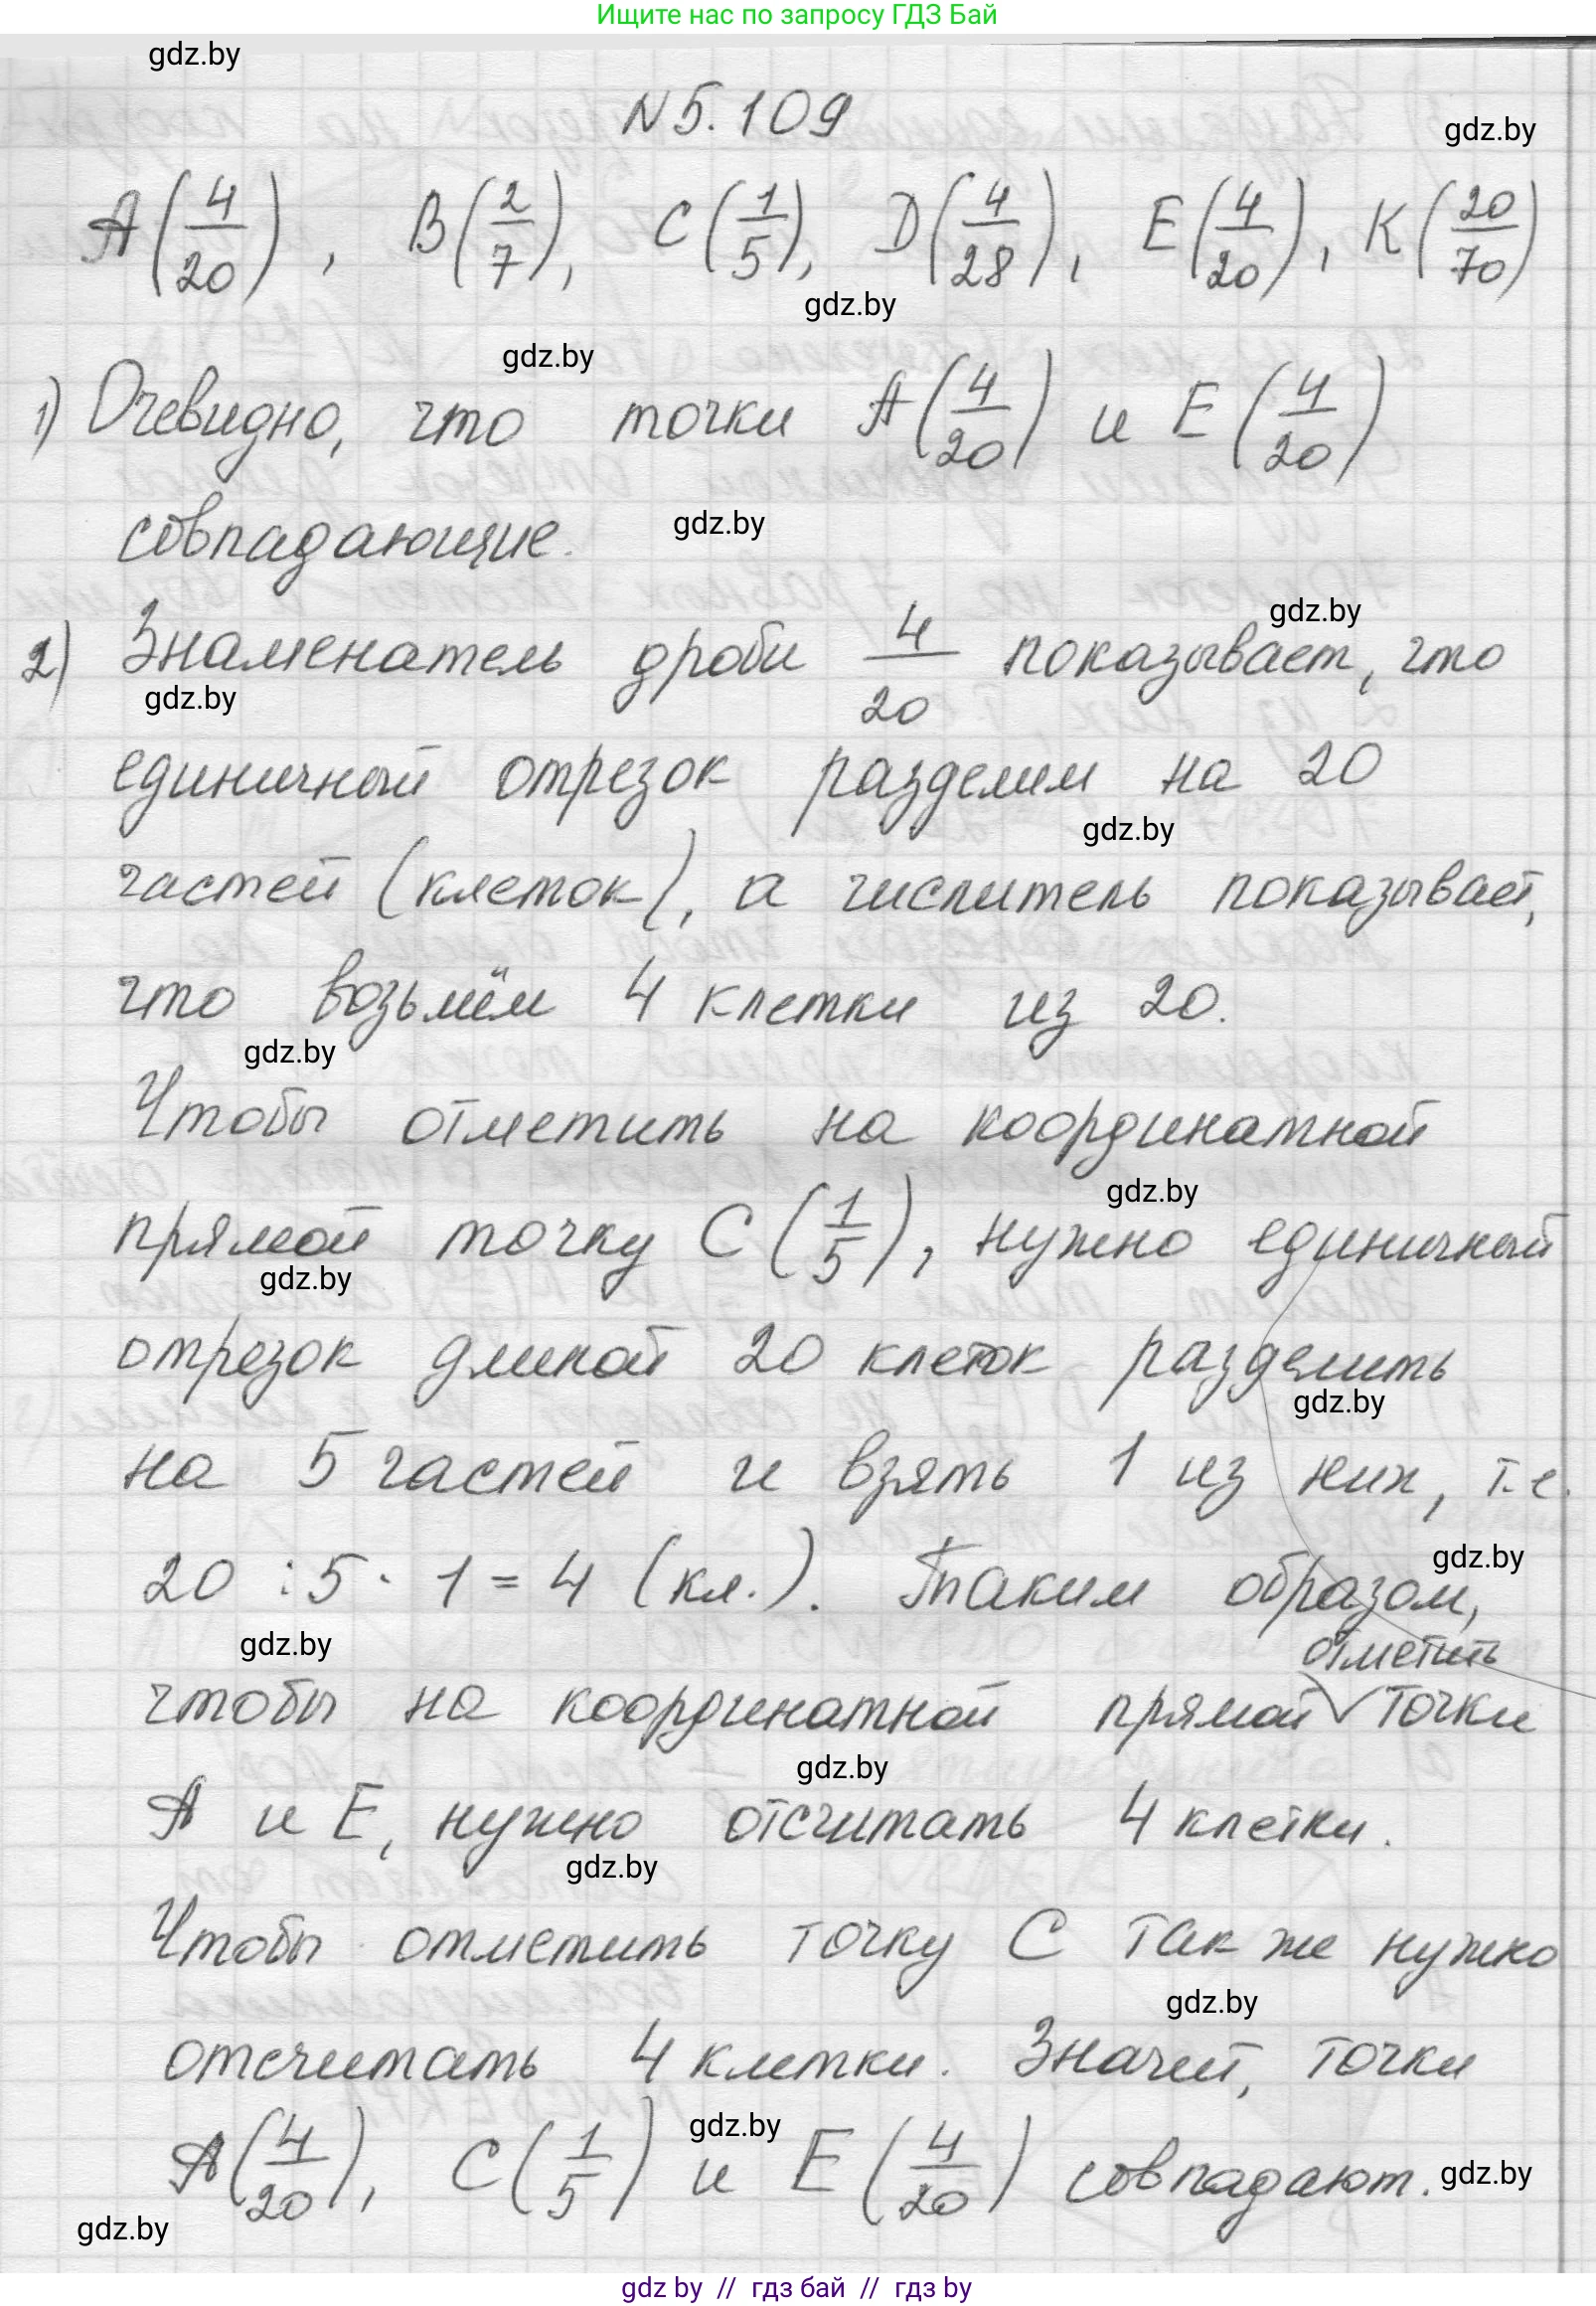 Ищите нас по запросу ГДЗ Бай
gdz.by
N 5.109
gdz.by
A(4/20), B(2/7), C(1/5), D(4/28), E(4/20), K(20/70)
gdz.by
gdz.by
1) Очевидно, что точки A(4/20) и E(4/20)
совпадающие.
gdz.by
gdz.by
2) Знаменатель дроби 4/20 показывает, что
gdz.by
единичный отрезок разделим на 20
gdz.by
частей (клеток), а числитель показывает,
что возьмём 4 клетки из 20.
gdz.by
Чтобы отметить на координатной
gdz.by
прямой точку C(1/5), нужно единичный
gdz.by
отрезок длиной 20 клеток разделить
gdz.by
на 5 частей и взять 1 из них, т.е.
gdz.by
20 : 5 · 1 = 4 (кл.). Таким образом,
gdz.by
отметить
чтобы на координатной прямой ∨ точки
gdz.by
A и E, нужно отсчитать 4 клетки.
gdz.by
Чтобы отметить точку C так же нужно
gdz.by
отсчитать 4 клетки. Значит, точки
gdz.by
A(4/20), C(1/5) и E(4/20) совпадают.
gdz.by
gdz.by
gdz by // гдз бай // гдз by